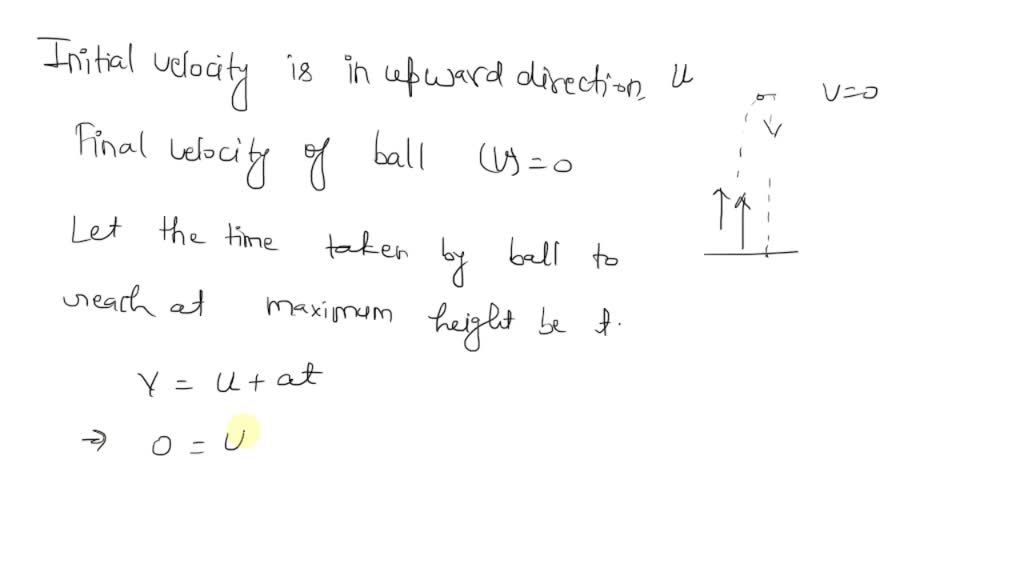 Initial velocity is in upward direction, u
V=0
Final velocity of ball (V)=0
V
Let the time taken by ball to
reach at maximum height be t.
V = u + at
⇒ 0 = U